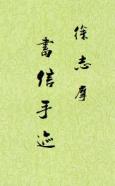 徐志摩
書信手迹